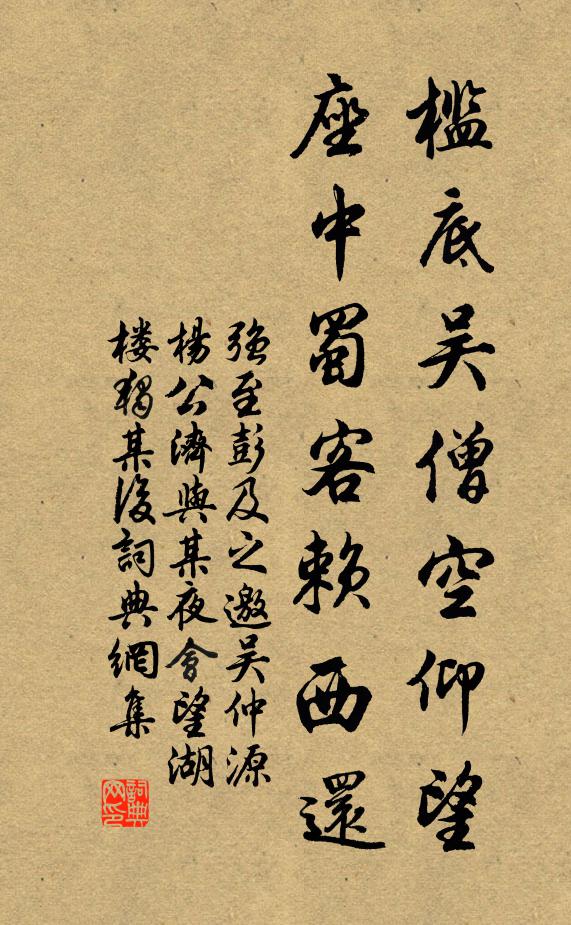 檻底吴僧空仰望
座中蜀客賴西還
强至彭及之邀吴仲源
楊公濟與某夜會望湖
楼獨某後詞典網集
詞典
网印